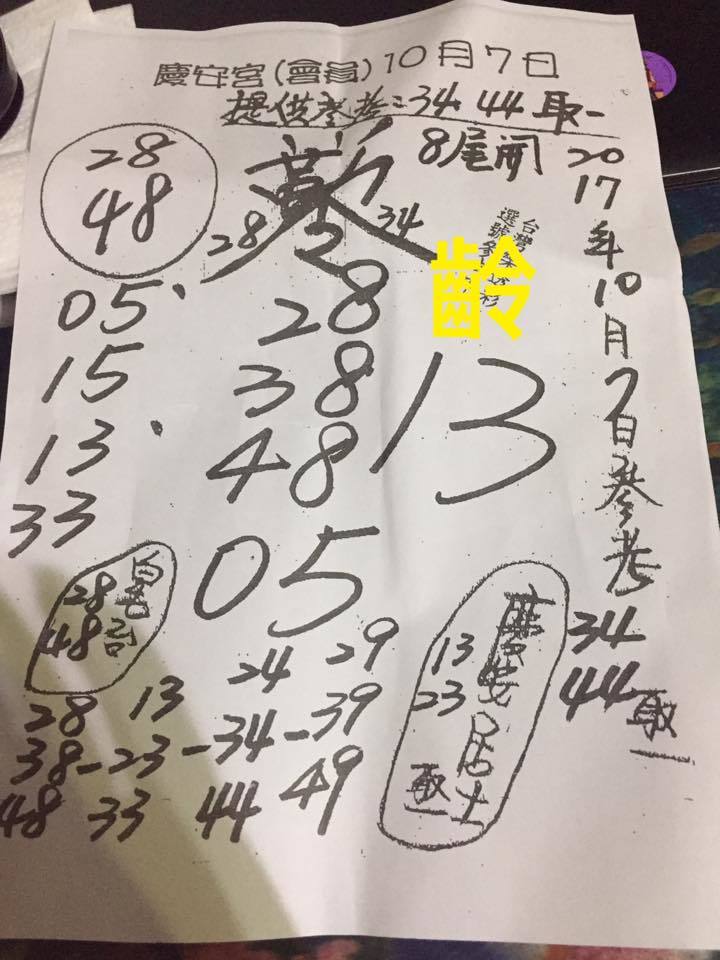 慶安宮(會員)10月7日
提供參考:34 44 取一
8尾開
28
48
28
34
2017年10月7日參考
34
44
取一
齡
05
15
13
33
28
38
48
13
05
28
48
慶安居士
13
23
取一
24 29
28 13
38-23-34-39
48 33 44 49